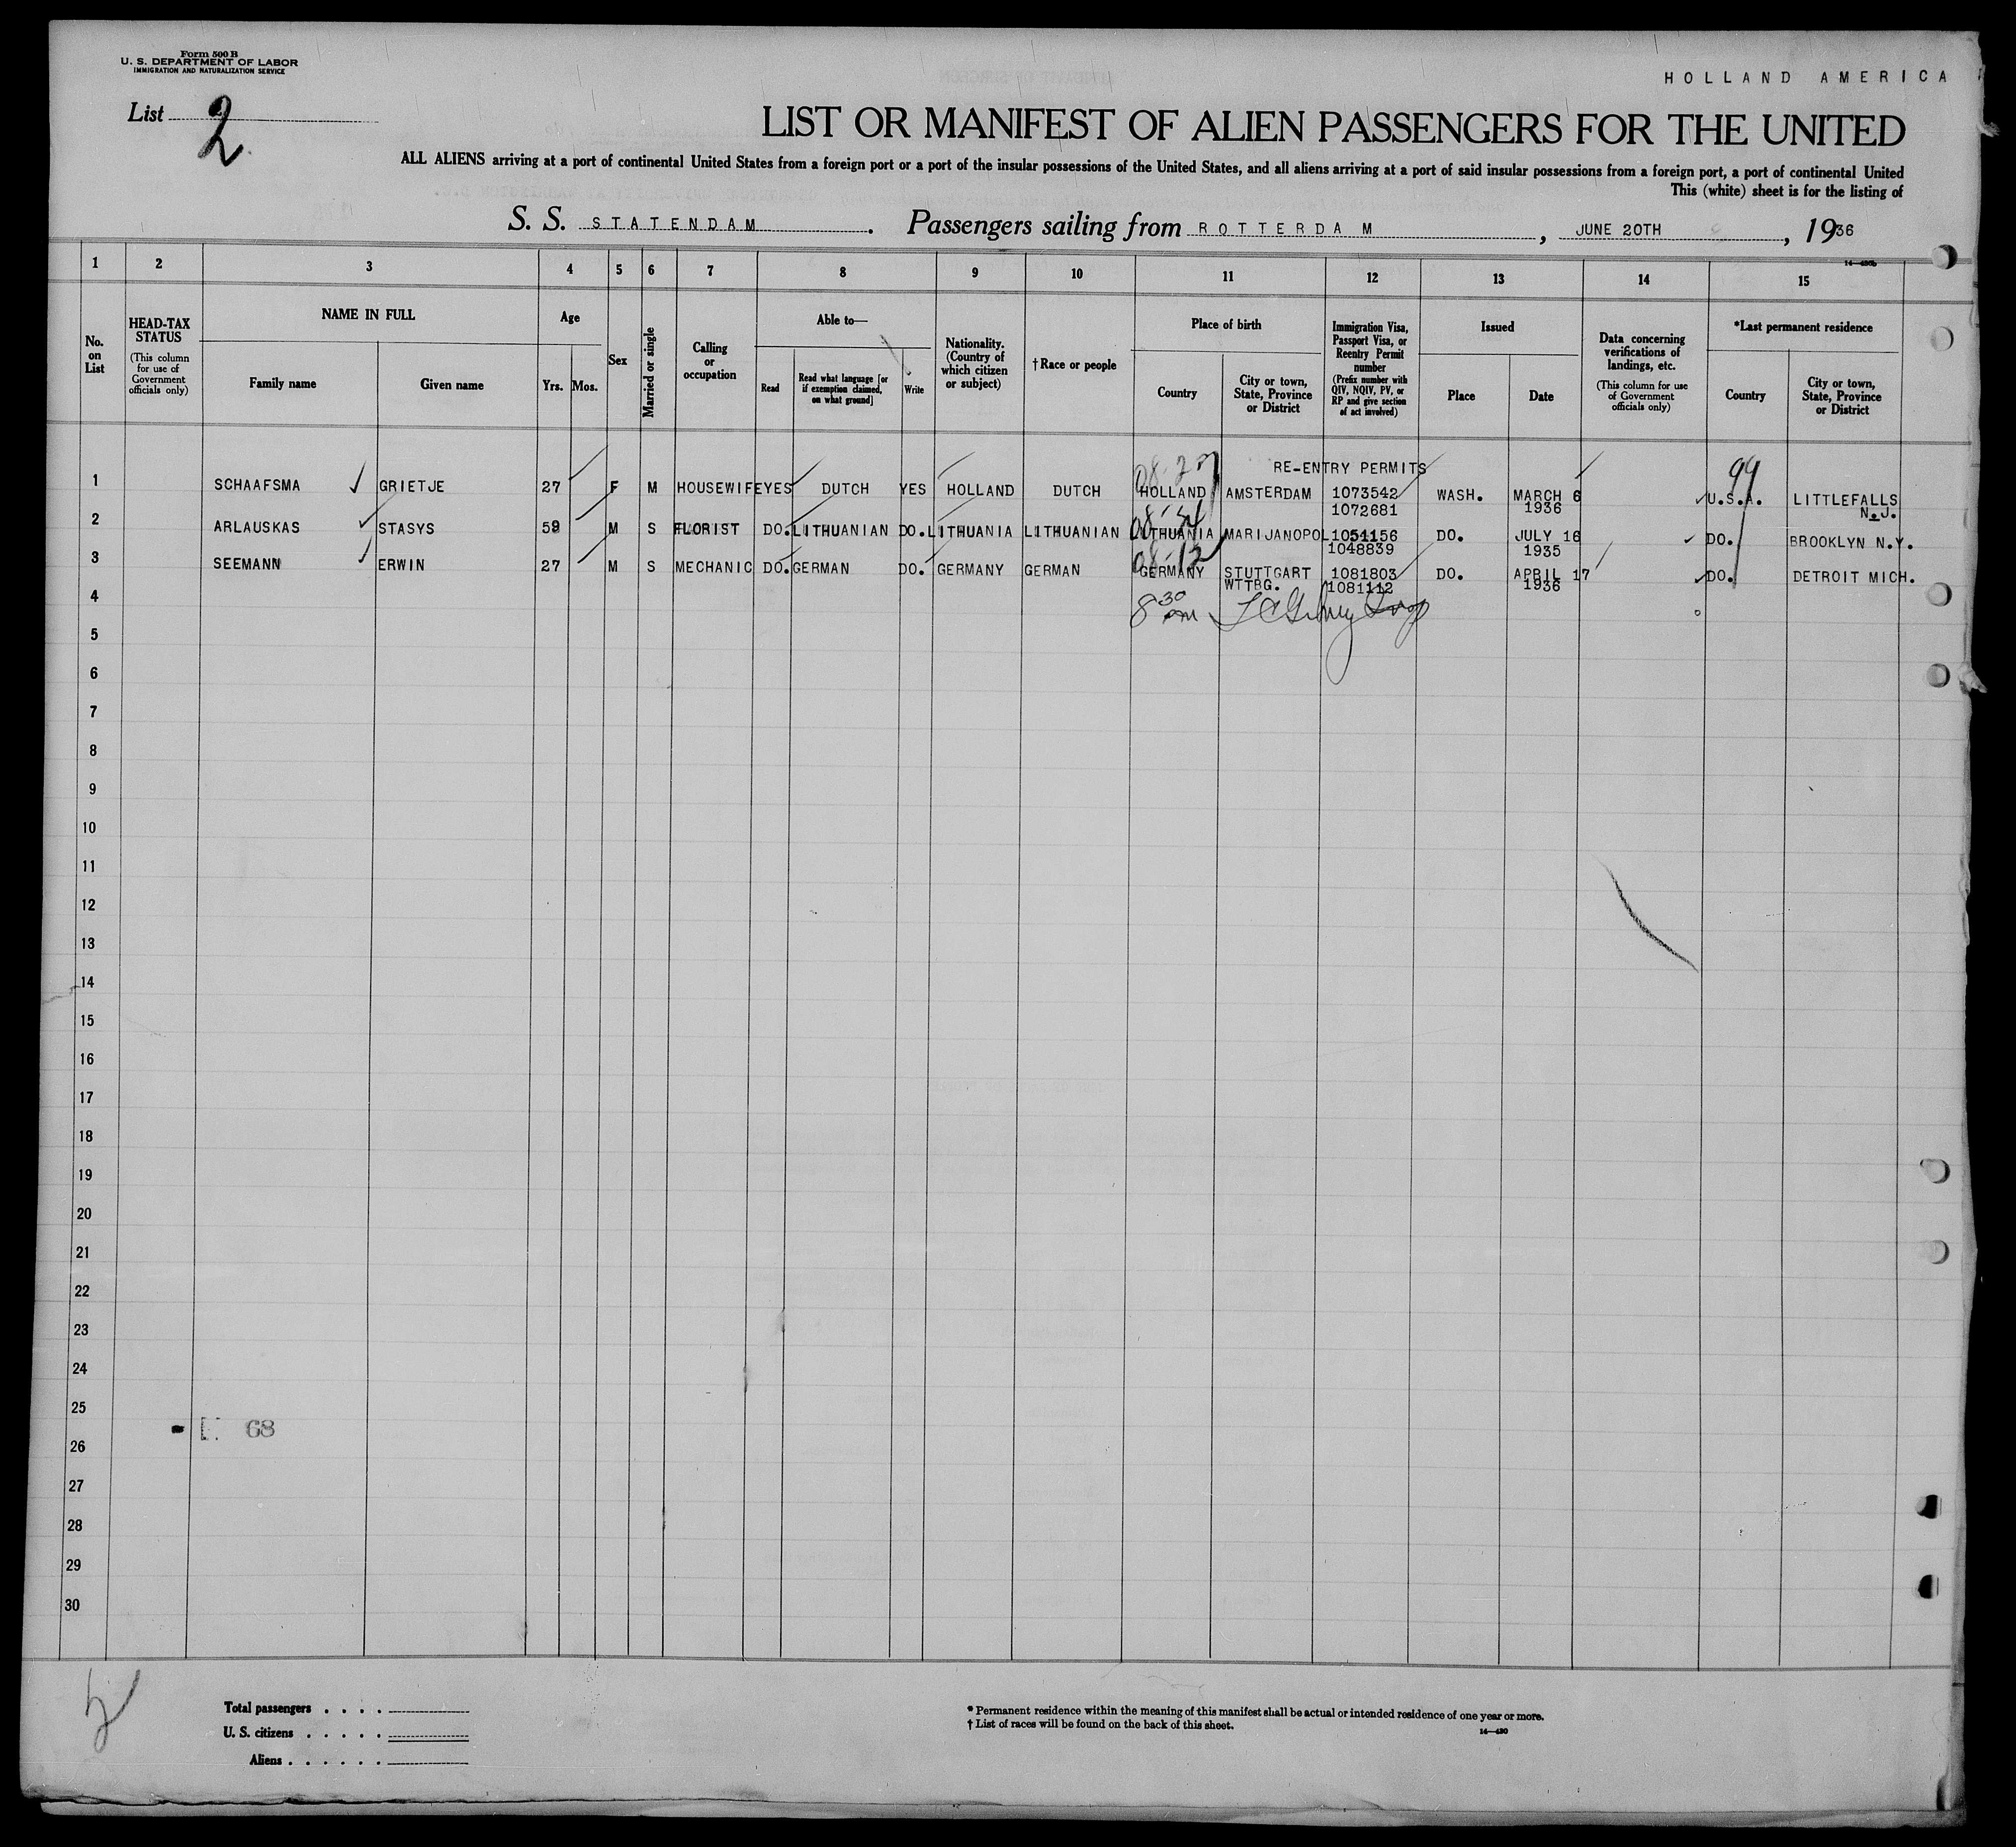 Form 500 B
U. S. DEPARTMENT OF LABOR
IMMIGRATION AND NATURALIZATION SERVICE
HOLLAND AMERICA
List 2
LIST OR MANIFEST OF ALIEN PASSENGERS FOR THE UNITED
ALL ALIENS arriving at a port of continental United States from a foreign port or a port of the insular possessions of the United States, and all aliens arriving at a port of said insular possessions from a foreign port, a port of continental United
This (white) sheet is for the listing of
S. S. STATENDAM. Passengers sailing from ROTTERDAM, JUNE 20TH, 1936
1 2 3 4 5 6 7 8 9 10 11 12 13 14 15
No. on List
HEAD-TAX STATUS (This column for use of Government officials only)
NAME IN FULL
Family name Given name
Age
Yrs. Mos.
Sex
Married or single
Calling or occupation
Able to—
Read Read what language [or if exemption claimed, on what ground] Write
Nationality. (Country of which citizen or subject)
† Race or people
Place of birth
Country City or town, State, Province or District
Immigration Visa, Passport Visa, or Reentry Permit number (Prefix number with QIV, NQIV, PV, or RP and give section of act involved)
Issued
Place Date
Data concerning verifications of landings, etc. (This column for use of Government officials only)
*Last permanent residence
Country City or town, State, Province or District
RE-ENTRY PERMITS 99
1 SCHAAFSMA GRIETJE 27 F M HOUSEWIFE YES DUTCH YES HOLLAND DUTCH HOLLAND AMSTERDAM 1073542 WASH. MARCH 6 U.S.A. LITTLEFALLS
1072681 1936 N.J.
2 ARLAUSKAS STASYS 59 M S FLORIST DO. LITHUANIAN DO. LITHUANIA LITHUANIAN LITHUANIA MARIJANOPOL 1054156 DO. JULY 16 DO. BROOKLYN N.Y.
1048839 1935
3 SEEMANN ERWIN 27 M S MECHANIC DO. GERMAN DO. GERMANY GERMAN GERMANY STUTTGART 1081803 DO. APRIL 17 DO. DETROIT MICH.
WTTBG. 1081112 1936
4
8 30
5
6
7
8
9
10
11
12
13
14
15
16
17
18
19
20
21
22
23
24
25
68
26
27
28
29
30
Total passengers . . . .
U. S. citizens . . . . .
Aliens . . . . . .
* Permanent residence within the meaning of this manifest shall be actual or intended residence of one year or more.
† List of races will be found on the back of this sheet.
14—430